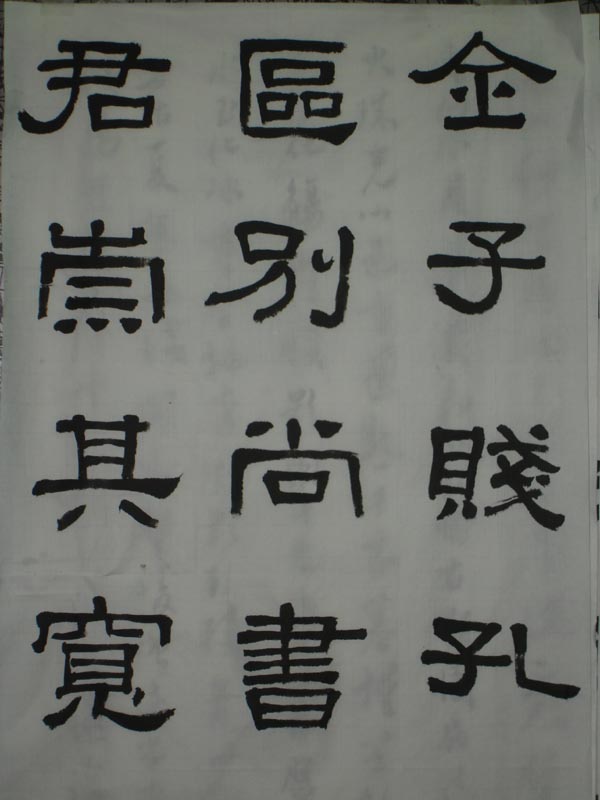 金子賤孔
區別尚書
君崇其寬